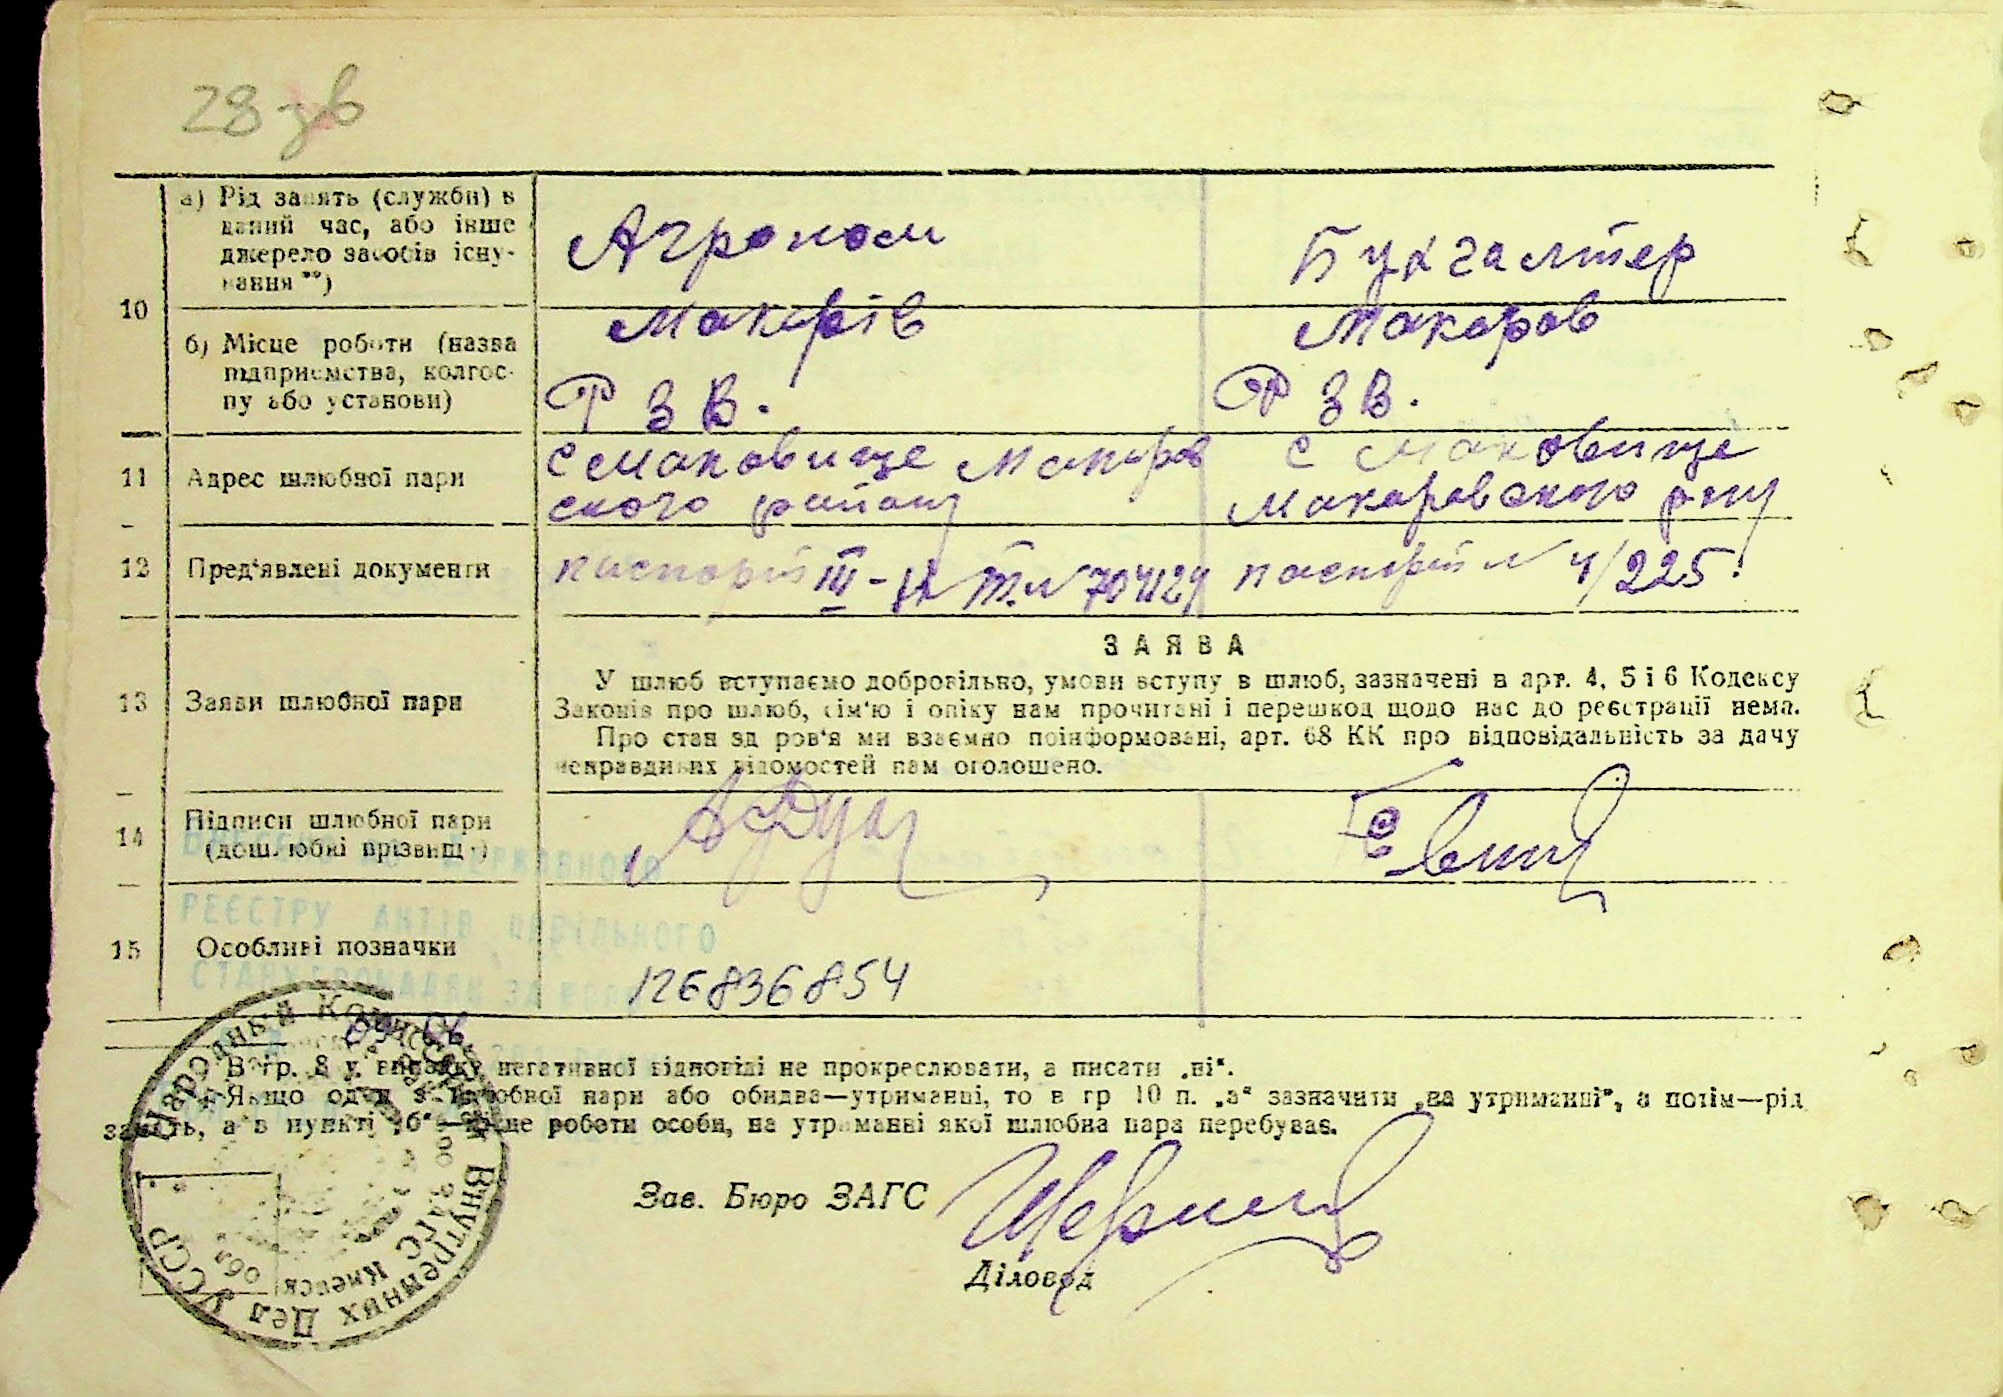 28 зв
10
а) Рід занять (служби) в
даний час, або інше
джерело засобів існу-
вання **)
Агроном
Бухгалтер
б) Місце роботи (назва
підприємства, колгос-
пу або установи)
Макарів
РЗВ.
Макаров
РЗВ.
11
Адрес шлюбної пари
с Маковище Макаров
ского району
с Маковище
Макаровского р-ну
12
Пред'явлені документи
паспорт III- № 704129
паспорт № 4/225.
13
Заяви шлюбної пари
ЗАЯВА
У шлюб вступаємо добровільно, умови вступу в шлюб, зазначені в арт. 4, 5 і 6 Кодексу
Законів про шлюб, сім'ю і опіку нам прочитані і перешкод щодо нас до реєстрації нема.
Про стан здоров'я ми взаємно поінформовані, арт. 68 КК про відповідальність за дачу
неправдивих відомостей нам оголошено.
14
Підписи шлюбної пари
(дошлюбні прізвища)
ДЕРЖАВНОГО
РЕЄСТРУ АКТІВ ЦИВІЛЬНОГО
СТАНУ ГРОМАДЯН ЗА
15
Особливі позначки
126836854
В гр. 8 у випадку негативної відповіді не прокреслювати, а писати „ні“.
Якщо один з шлюбної пари або обидва—утриманці, то в гр 10 п. „а“ зазначити „на утриманні“, а потім—рід
занять, а в пункті „б“—місце роботи особи, на утриманні якої шлюбна пара перебуває.
Народный Комиссариат Внутренних Дел УССР
ЗАГС Киевск обл
Зав. Бюро ЗАГС
Діловод